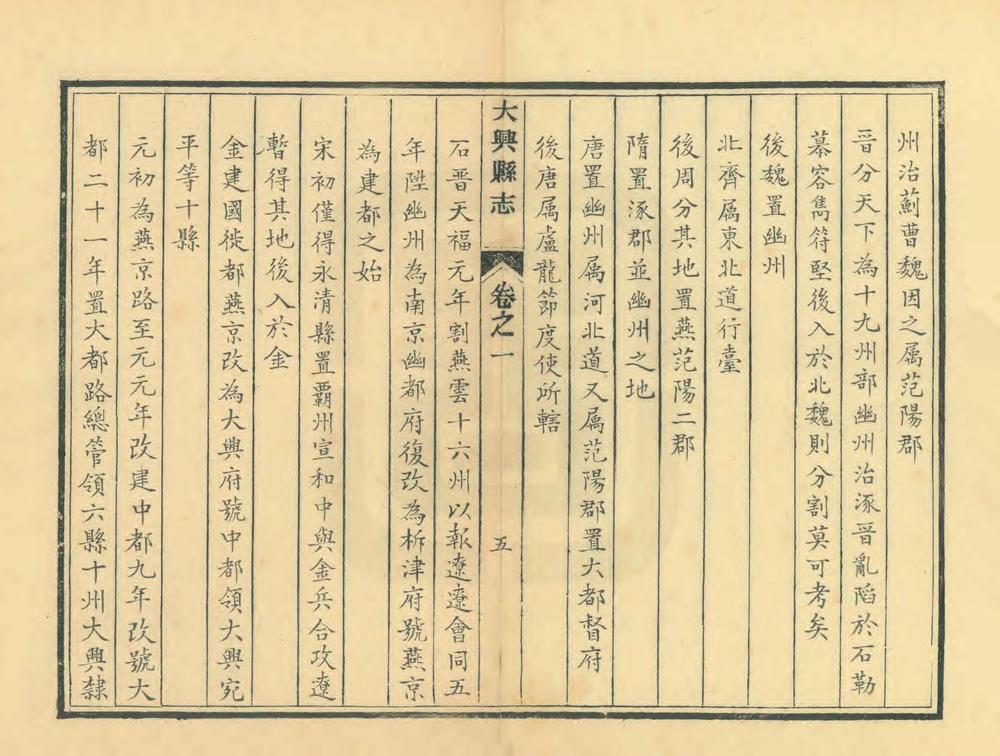 州治薊曹魏因之属范陽郡
晋分天下為十九州部幽州治涿晋亂陷於石勒
慕容雋符堅後入於北魏則分割莫可考矣
後魏置幽州
北齊属東北道行臺
後周分其地置燕范陽二郡
隋置涿郡並幽州之地
唐置幽州属河北道又属范陽郡置大都督府
後唐属盧龍節度使所轄
大興縣志 卷之一 五
石晋天福元年割燕雲十六州以報遼遼會同五
年陞幽州為南京幽都府復改為析津府號燕京
為建都之始
宋初僅得永清縣置霸州宣和中與金兵合攻遼
暫得其地後入於金
金建國徙都燕京改為大興府號中都領大興宛
平等十縣
元初為燕京路至元元年改建中都九年改號大
都二十一年置大都路總管領六縣十州大興隸